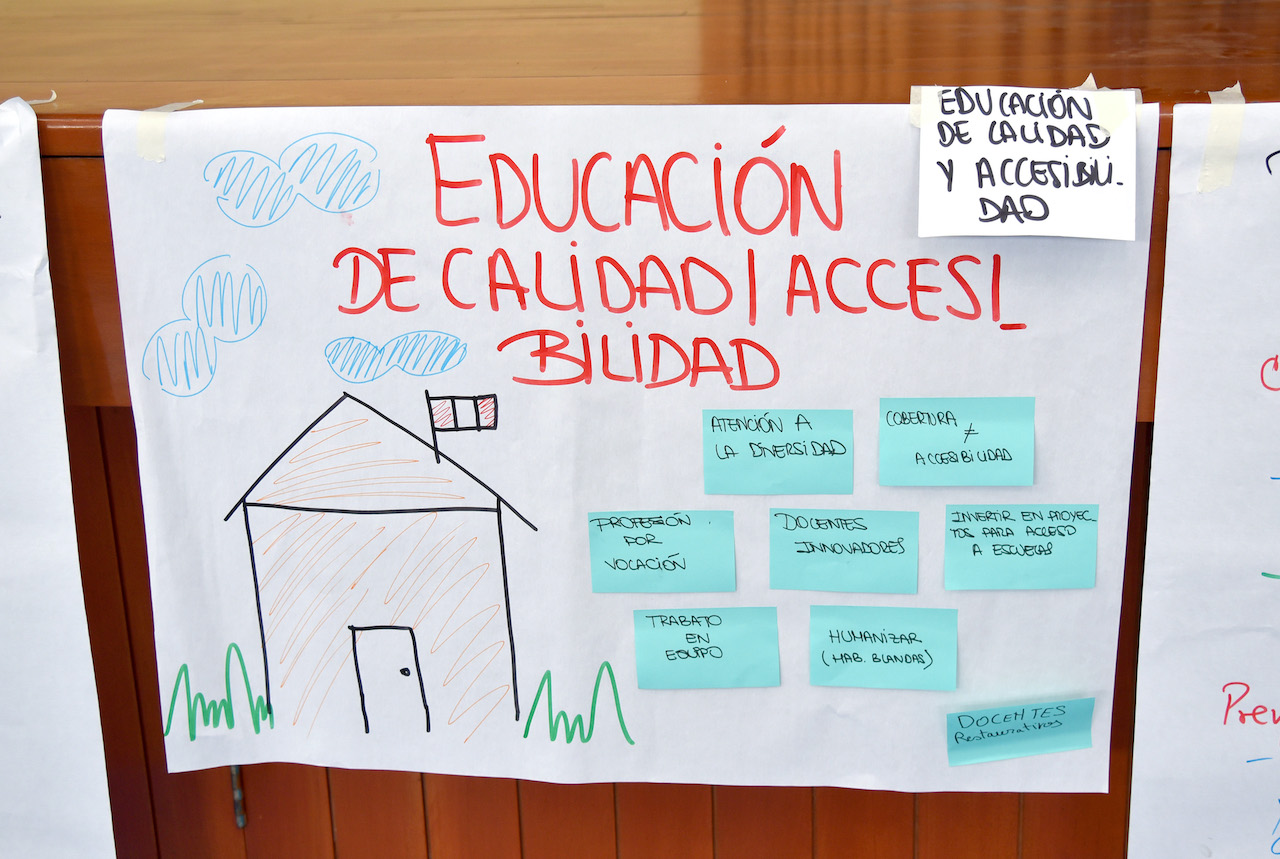 EDUCACIÓN
DE CALIDAD
Y ACCESIBILI-
DAD
EDUCACIÓN
DE CALIDAD / ACCESI_
BILIDAD
ATENCIÓN A
LA DIVERSIDAD
COBERTURA
≠
ACCESIBILIDAD
PROFESIÓN
POR
VOCACIÓN
DOCENTES
INNOVADORES
INVERTIR EN PROYEC-
TOS PARA ACCESO
A ESCUELAS
TRABAJO
EN
EQUIPO
HUMANIZAR
(HAB. BLANDAS)
DOCENTES
Restaurativos
Pre